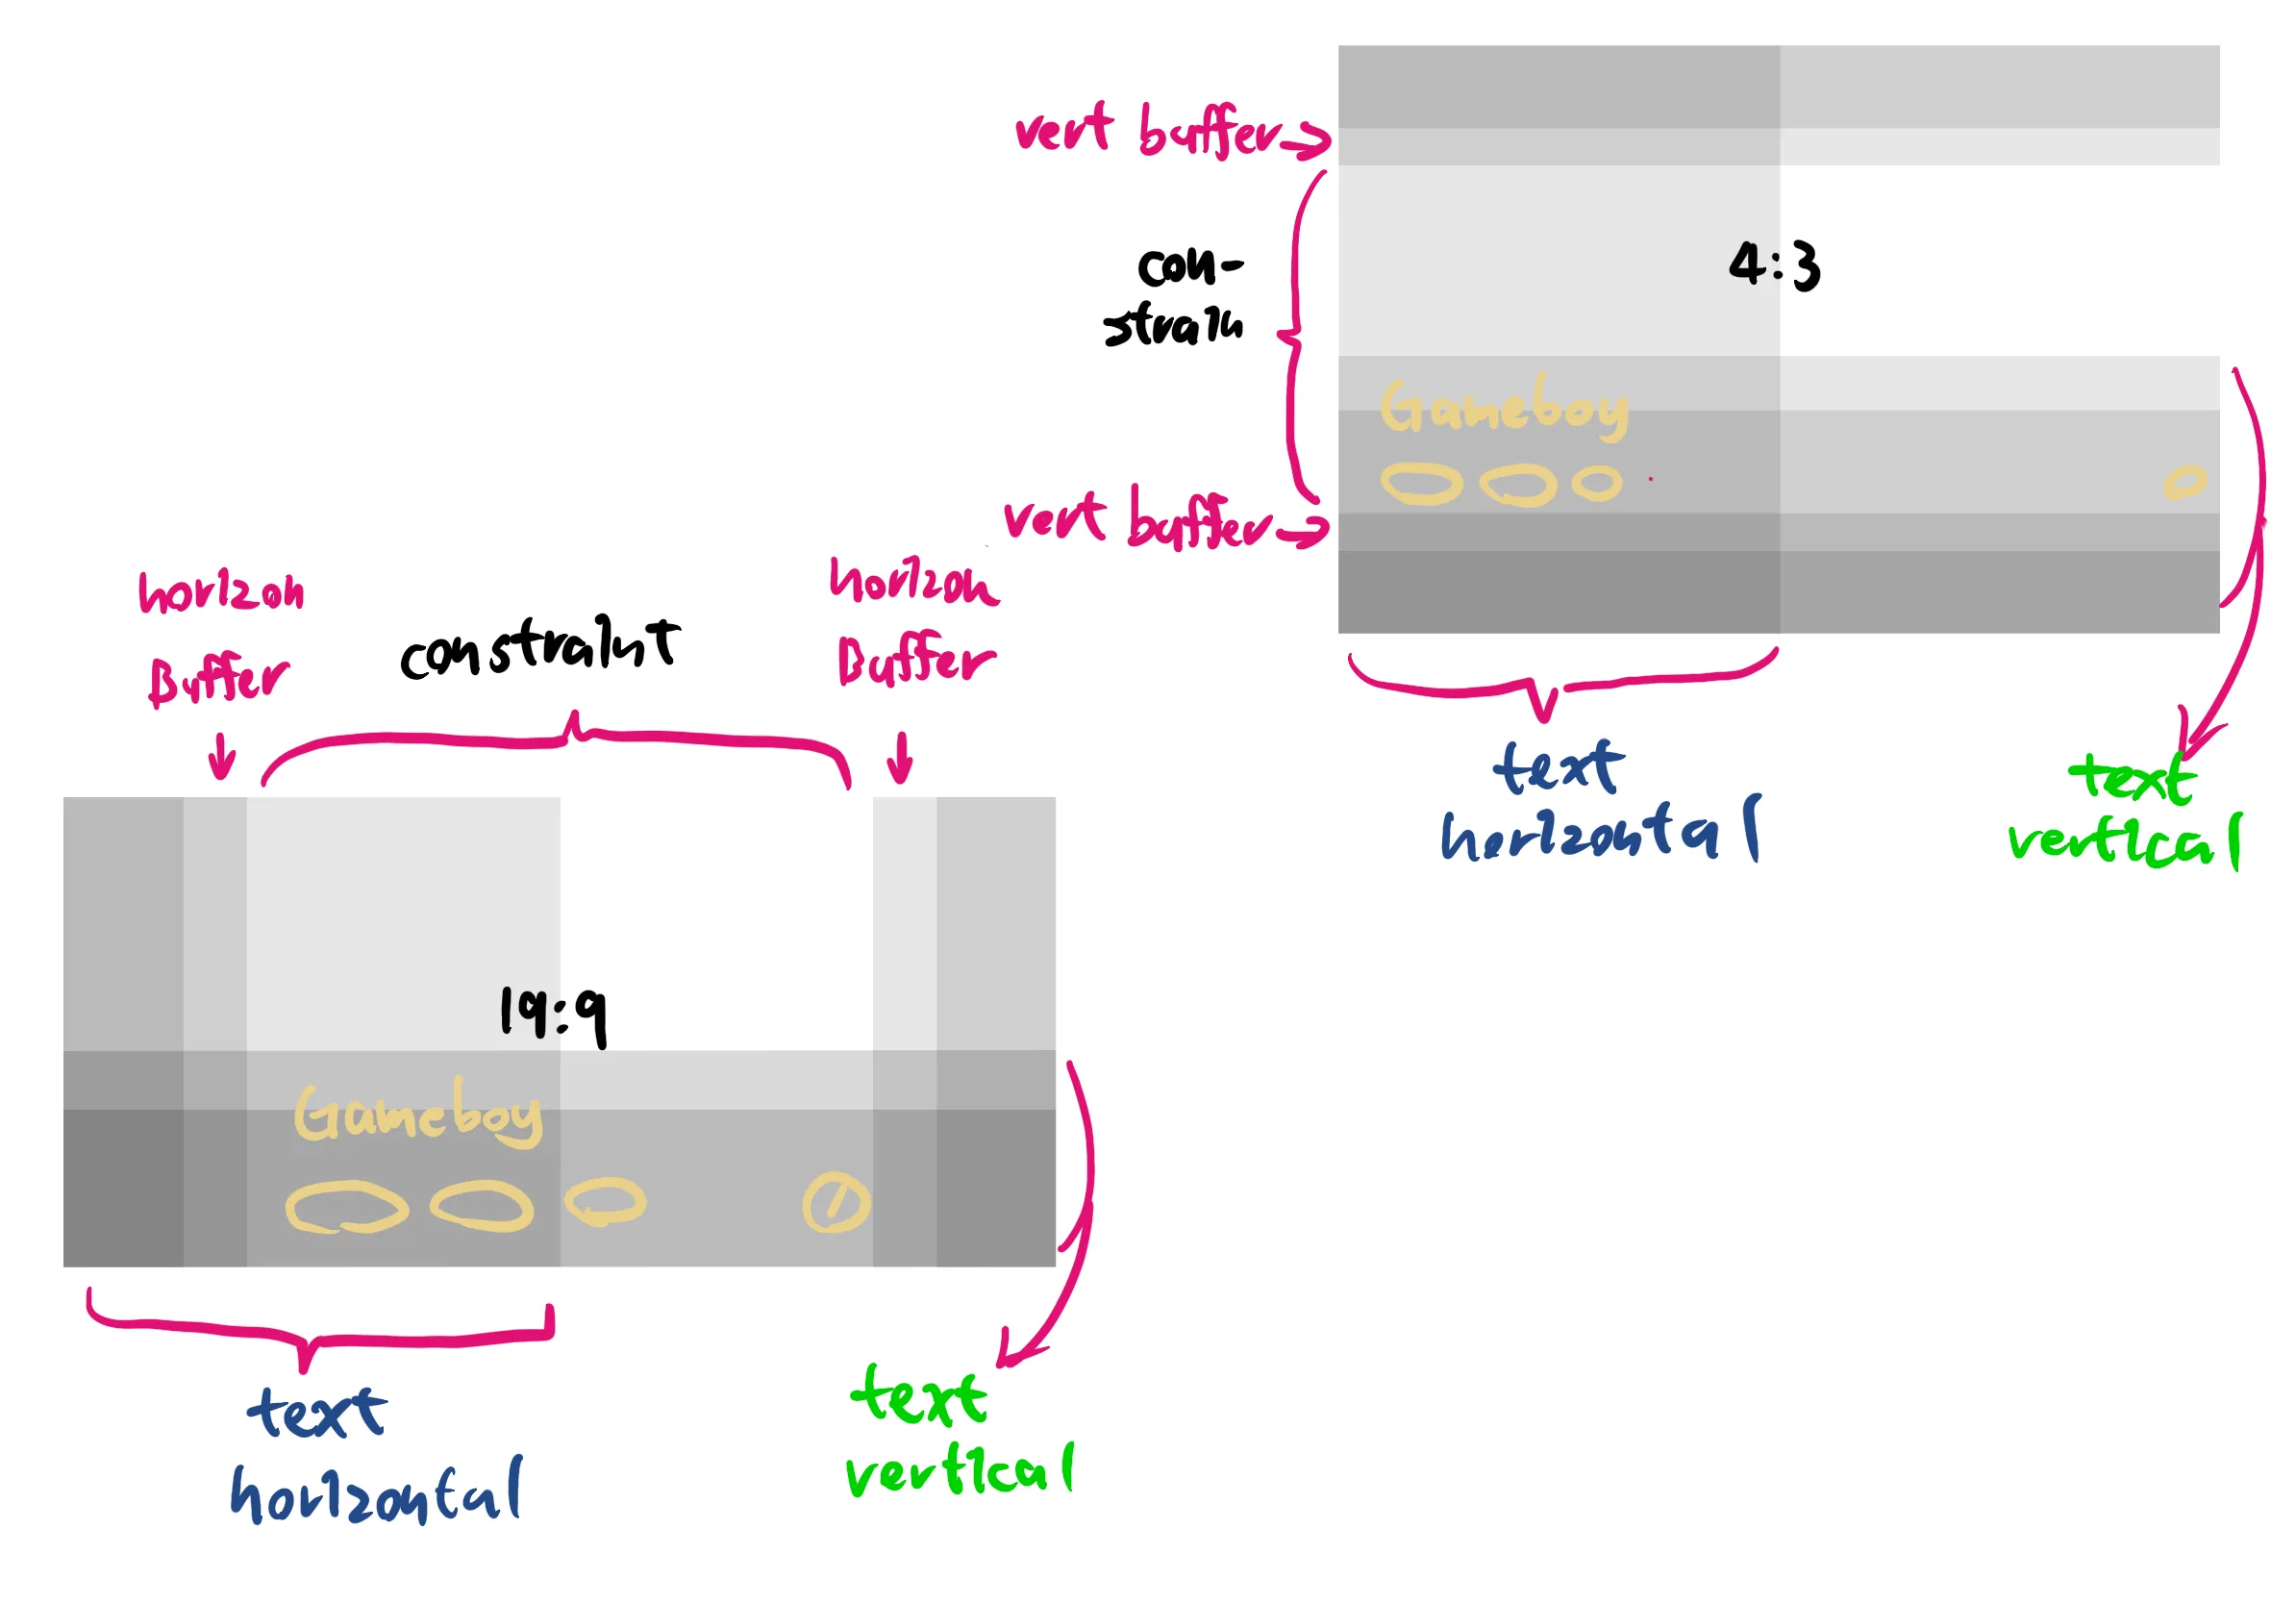 vert buffer
con-
strain
4:3
Gameboy
vert buffer
text
horizontal
text
vertical
horizon
Buffer
constraint
horizon
Buffer
19:9
Gameboy
text
horizontal
text
vertical